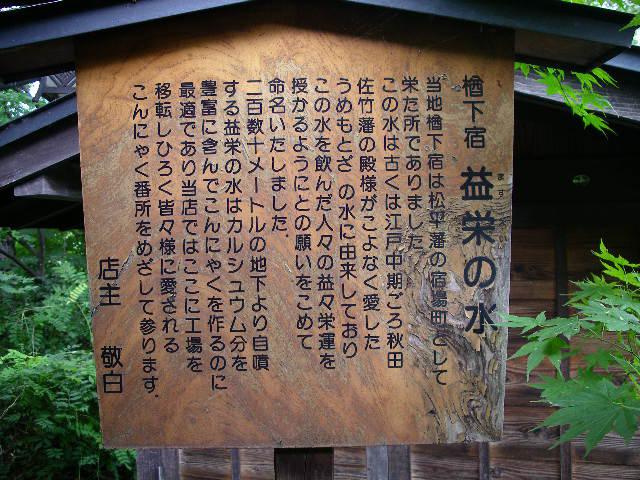 楢下宿 益栄の水
当地楢下宿は松平藩の宿場町として
栄た所でありました
この水は古くは江戸中期ごろ秋田
佐竹藩の殿様がこよなく愛した
うめもとざ の水に由来しており
この水を飲んだ人々の益々栄運を
授かるようにとの願いをこめて
命名いたしました.
二百数十メートルの地下より自噴
する益栄の水はカルシュウム分を
豊富に含んでこんにゃくを作るのに
最適であり当店ではここに工場を
移転しひろく皆々様に愛される
こんにゃく番所をめざして参ります.
店主 敬白